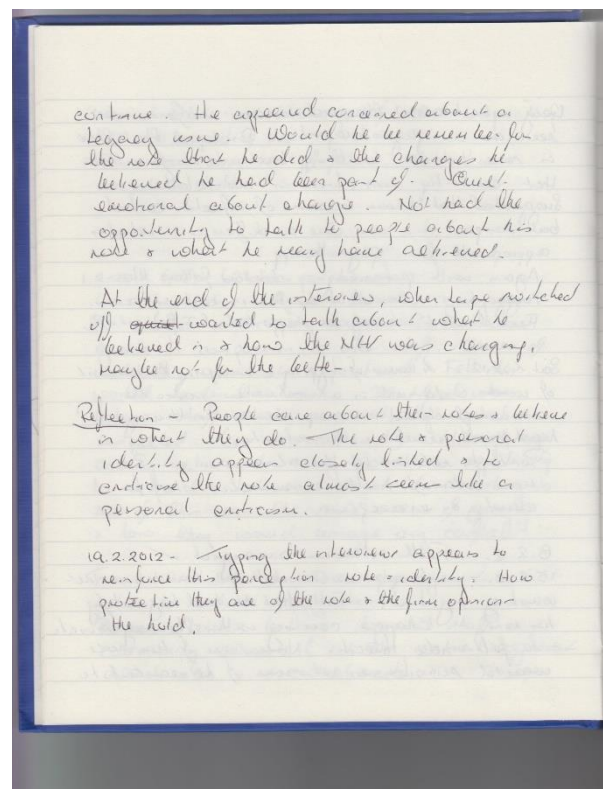 continue. He appeared concerned about a
Legacy issue. Would he be remember for
the role that he did & the changes he
believed he had been part of. Quiet
emotional about change. Not had the
opportunity to talk to people about his
role & what he may have achieved.
At the end of the interview, when tape switched
off quiet wanted to talk about what he
believed in & how the NHV was changing,
maybe not for the bette-
Reflection - People care about their roles & believe
in what they do. The role & personal
identity appear closely linked & to
criticise the role almost seem like a
personal criticism.
19.2.2012 - Typing the interviews appears to
reinforce this perception role = identity. How
protective they are of the role & the firm opinion
the hold.